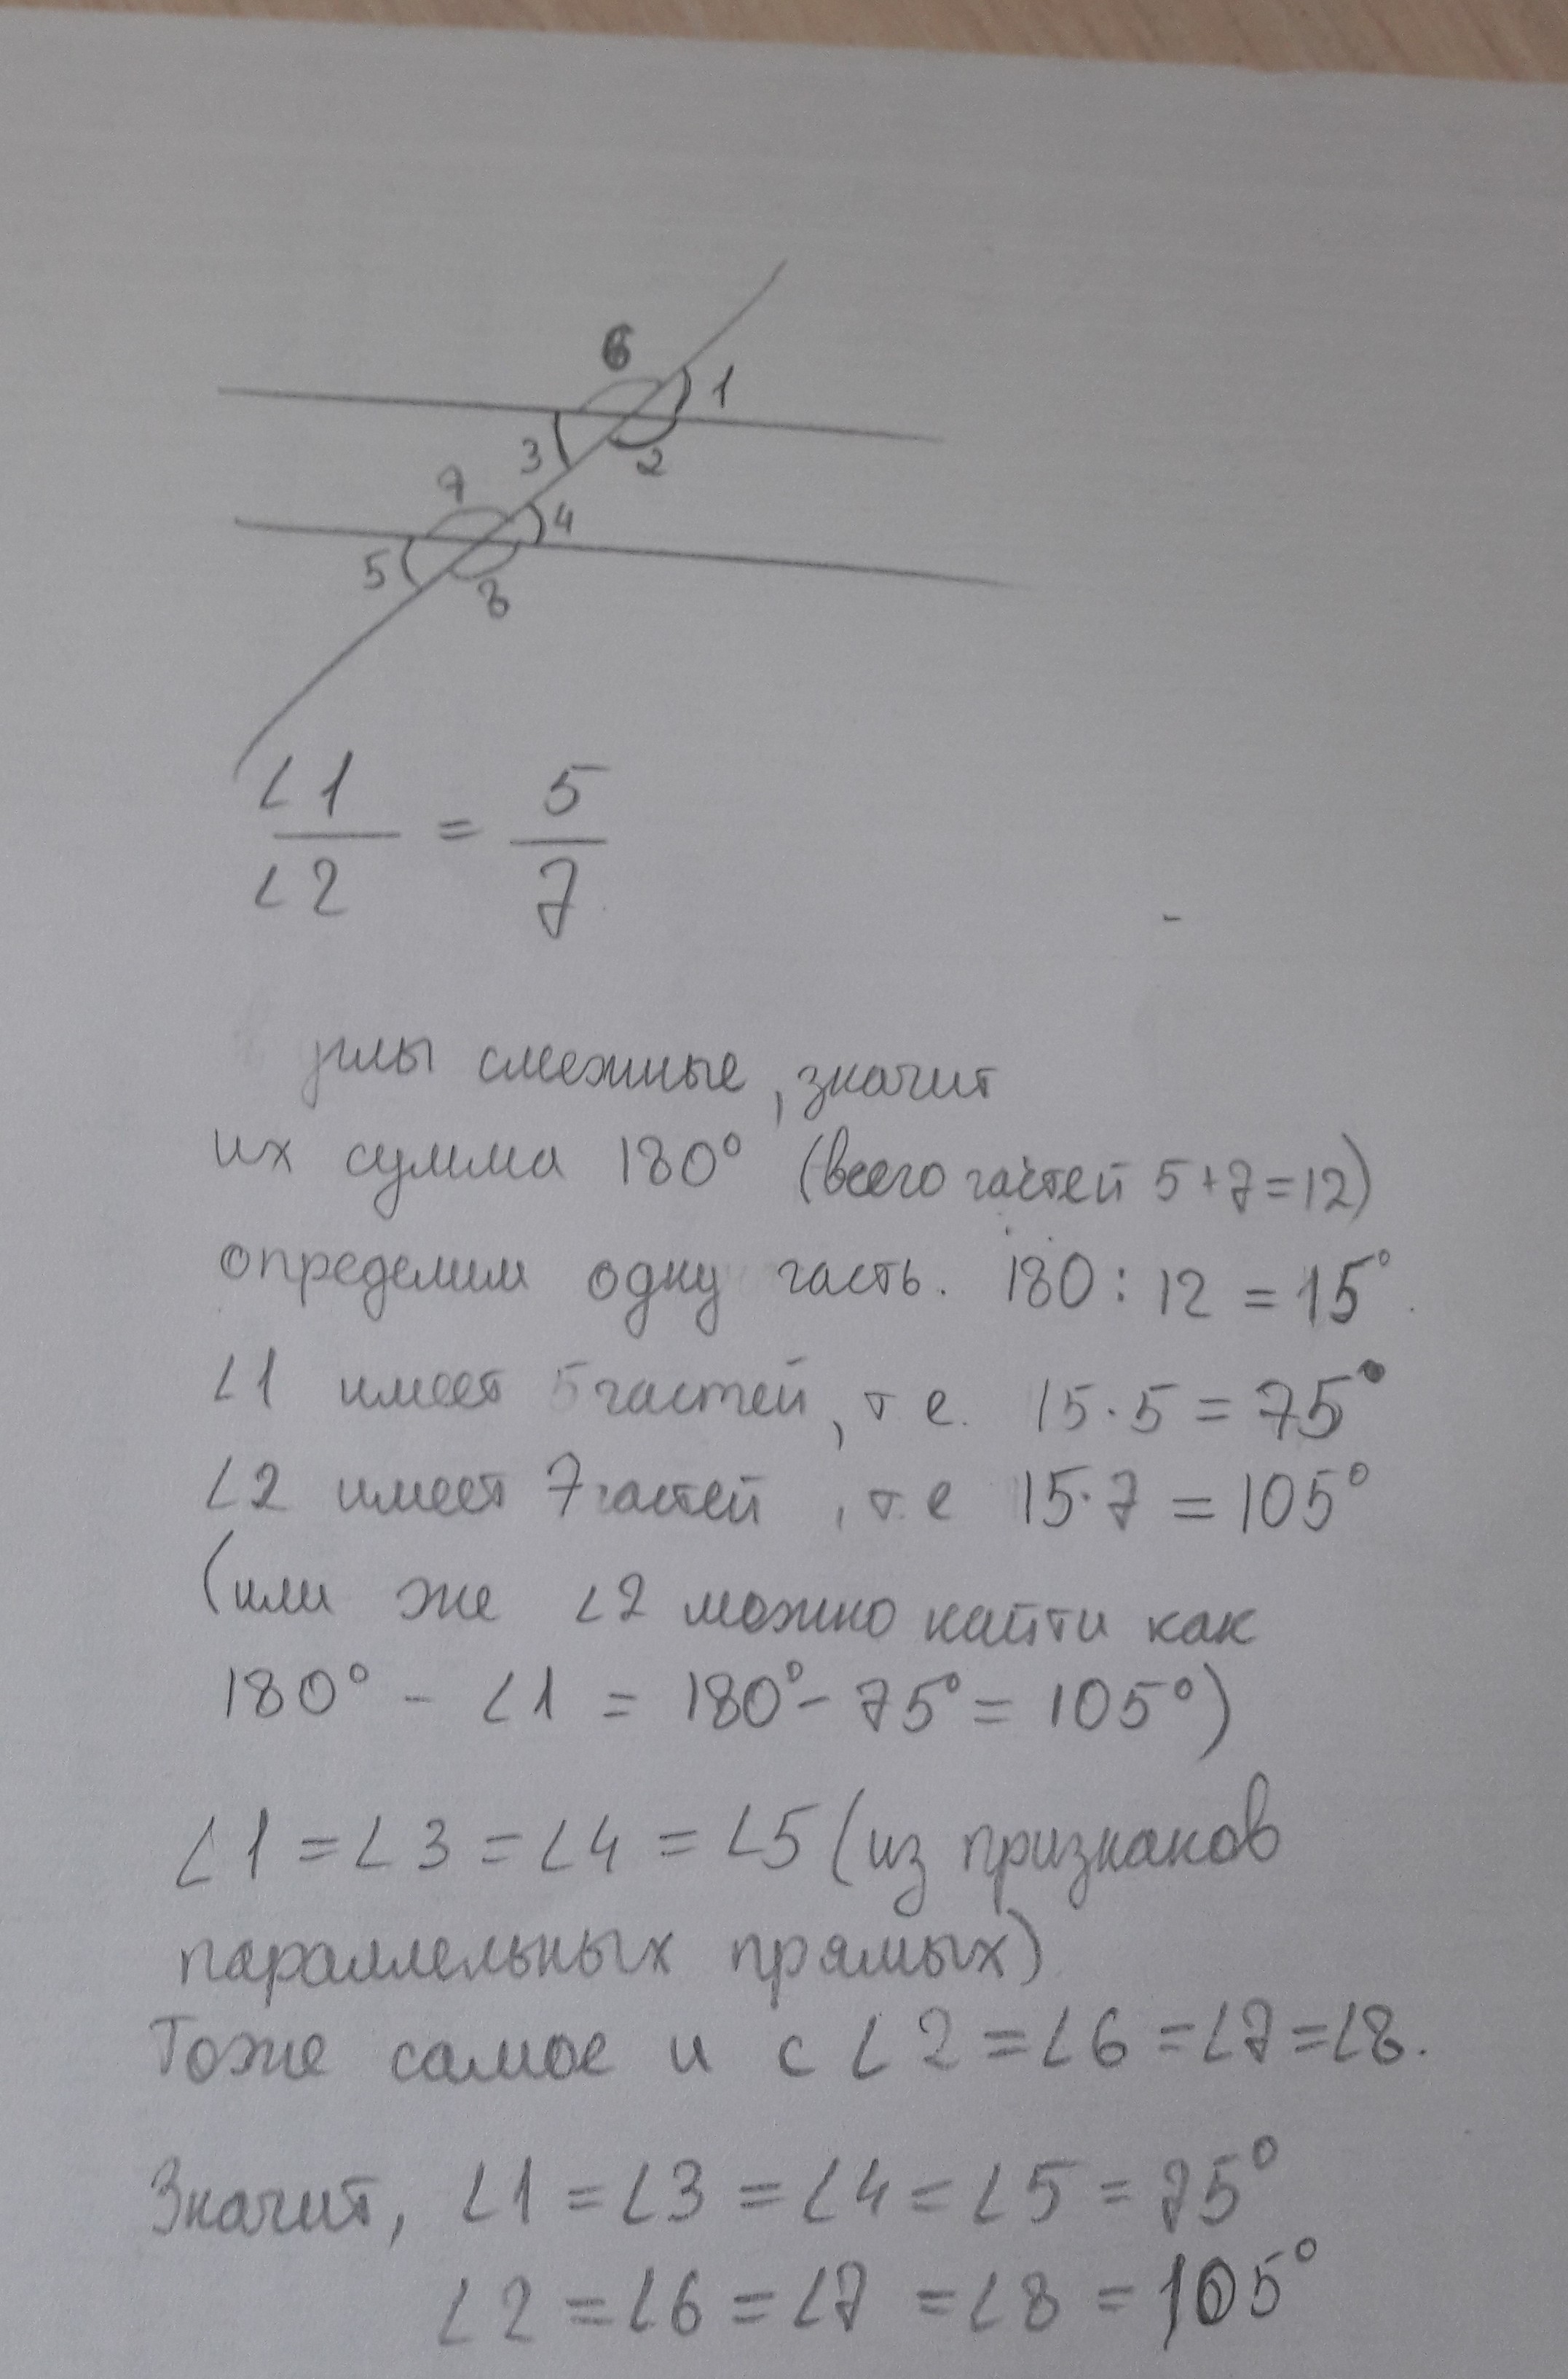 6
1
3
2
7
4
5
8
∠1 / ∠2 = 5 / 7
углы смежные, значит
их сумма 180° (всего частей 5+7=12)
определим одну часть. 180 : 12 = 15°.
∠1 имеет 5 частей, т е. 15·5 = 75°
∠2 имеет 7 частей, т.е 15·7 = 105°
(или же ∠2 можно найти как
180° - ∠1 = 180° - 75° = 105°)
∠1 = ∠3 = ∠4 = ∠5 (из признаков
параллельных прямых)
Тоже самое и с ∠2 = ∠6 = ∠7 = ∠8.
Значит, ∠1 = ∠3 = ∠4 = ∠5 = 75°
∠2 = ∠6 = ∠7 = ∠8 = 105°